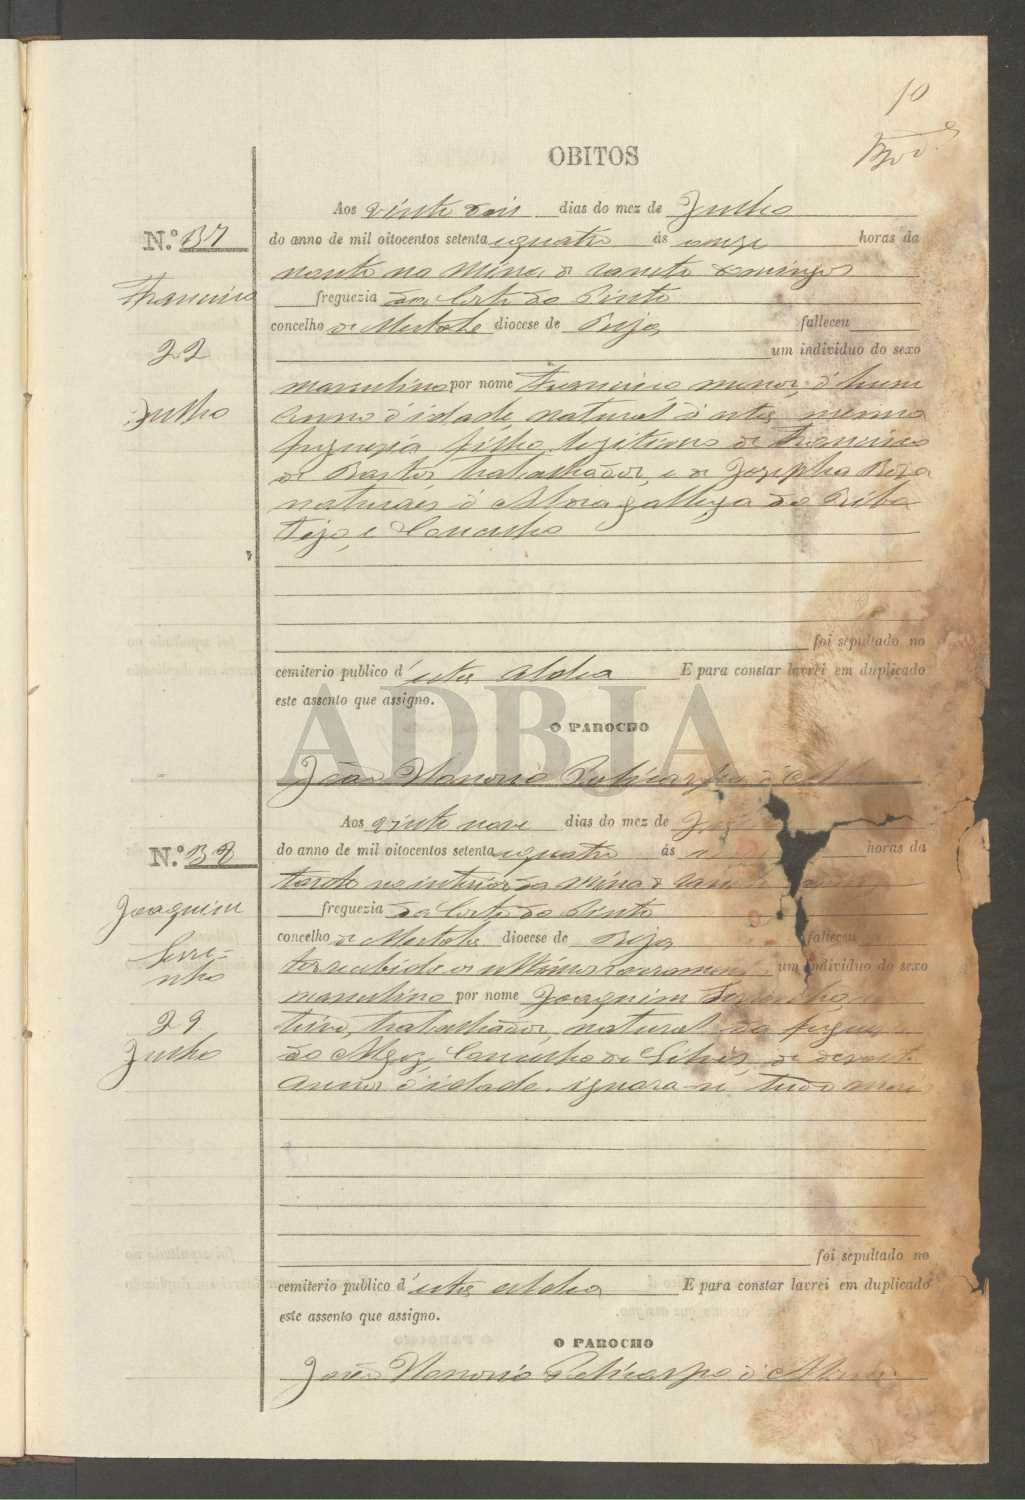 10
OBITOS
Aos vinte dois dias do mez de Julho
N.º 37
do anno de mil oitocentos setenta equatro ás onze horas da
noute na Mina de Sancto Domingos
Francisco
freguezia da Corte do Pinto
concelho de Mertola diocese de Beja falleceu
22
um individuo do sexo
masculino por nome Francisco menor, d'hum
Julho
anno d'idade, natural d'esta mesma
freguezia, filho legitimo de Francisco
de Bastos, trabalhador, e de Josepha Roza
naturaes d'Aldea gallega do Riba
Tejo, e Concelho
foi sepultado no
cemiterio publico d'esta aldea E para constar lavrei em duplicado
este assento que assigno.
ADBJA
O PAROCHO
João Honorio Policarpo d'
Aos vinte nove dias do mez de
N.º 38
do anno de mil oitocentos setenta equatro ás horas da
tarde no interior da Mina de
Joaquim
freguezia da Corte do Pinto
concelho de Mertola diocese de Beja falleceu
Serri-
nho
um individuo do sexo
masculino por nome Joaquim Serrinho,
29
trabalhador, natural da
Julho
do Algoz, Concelho de Silves, de
annos d'idade. ignora-se tudo mais
foi sepultado no
cemiterio publico d'esta aldea E para constar lavrei em duplicado
este assento que assigno.
O PAROCHO
João Honorio Policarpo d'